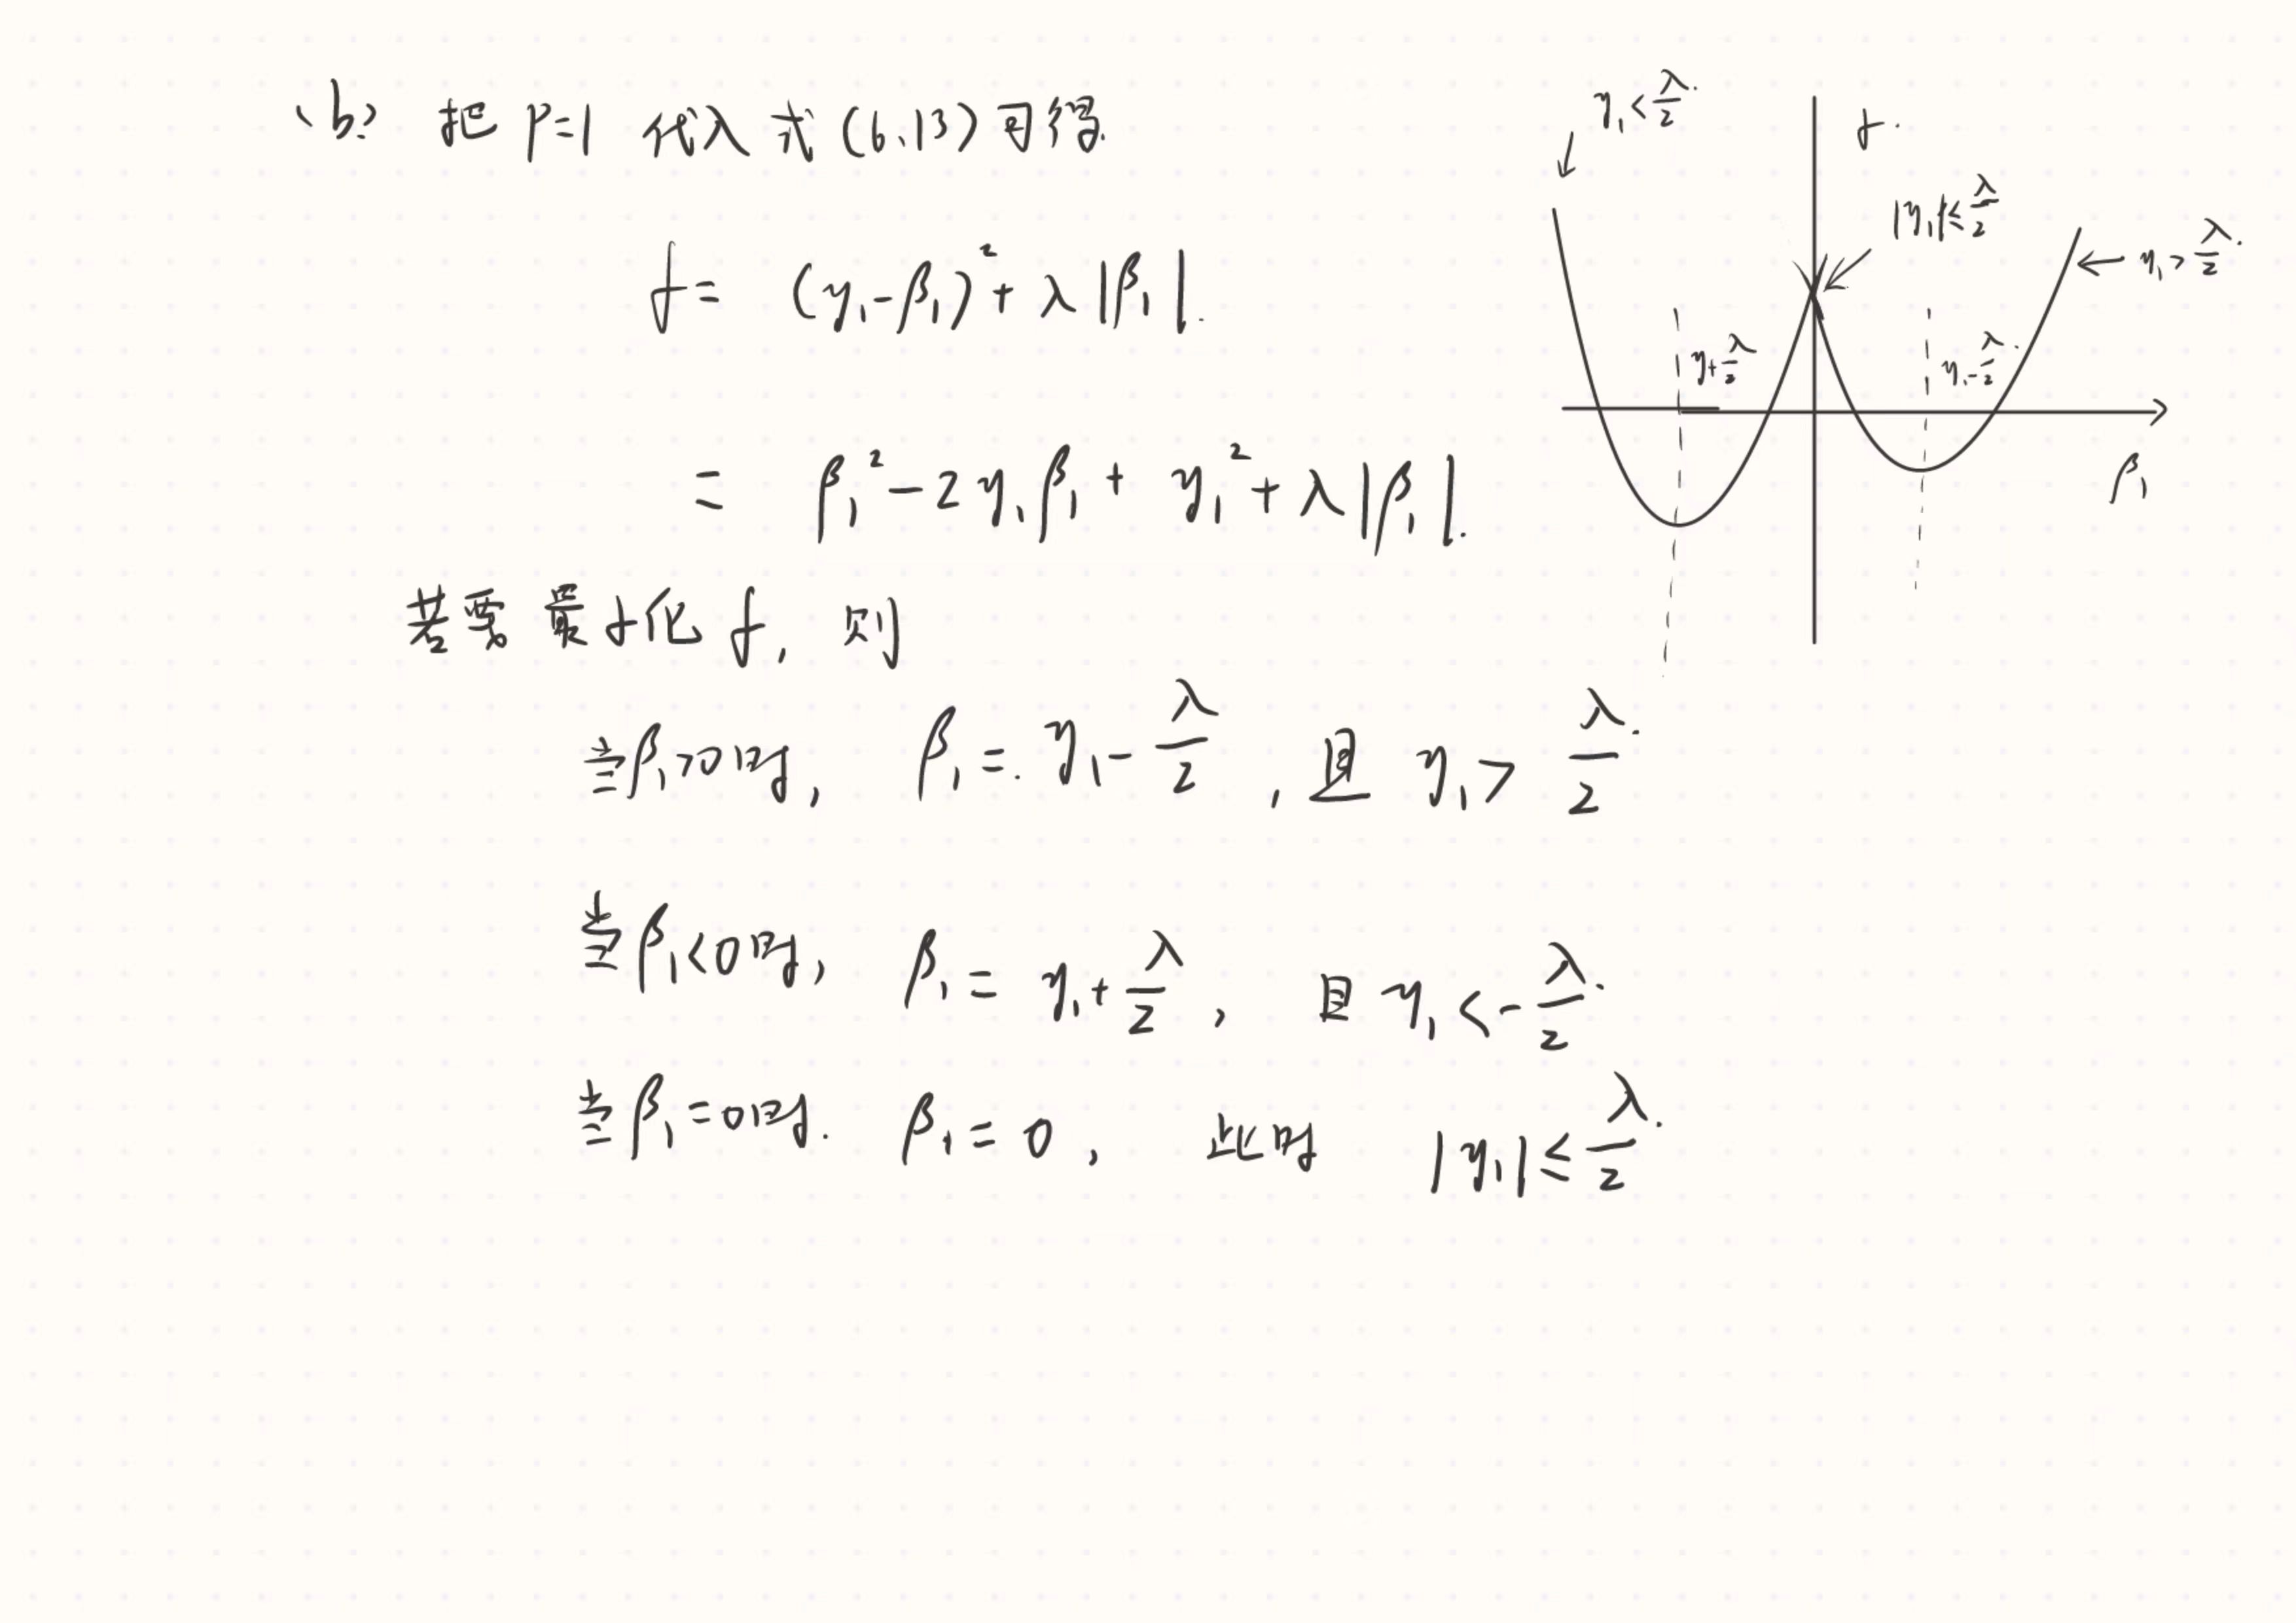 (b) 把 P=1 代入式(6.13)可得.
f = (y₁-β₁)² + λ|β₁|.
= β₁² - 2y₁β₁ + y₁² + λ|β₁|.
若需最小化 f, 则
当β₁>0时, β₁ = y₁ - λ/2, 且 y₁ > λ/2.
当β₁<0时, β₁ = y₁ + λ/2, 且 y₁ < -λ/2.
当β₁=0时. β₁ = 0, 此时 |y₁| ≤ λ/2.
y₁ < λ/2.
f.
|y₁| ≤ λ/2
y₁ > λ/2.
y+λ/2
y₁-λ/2.
β₁